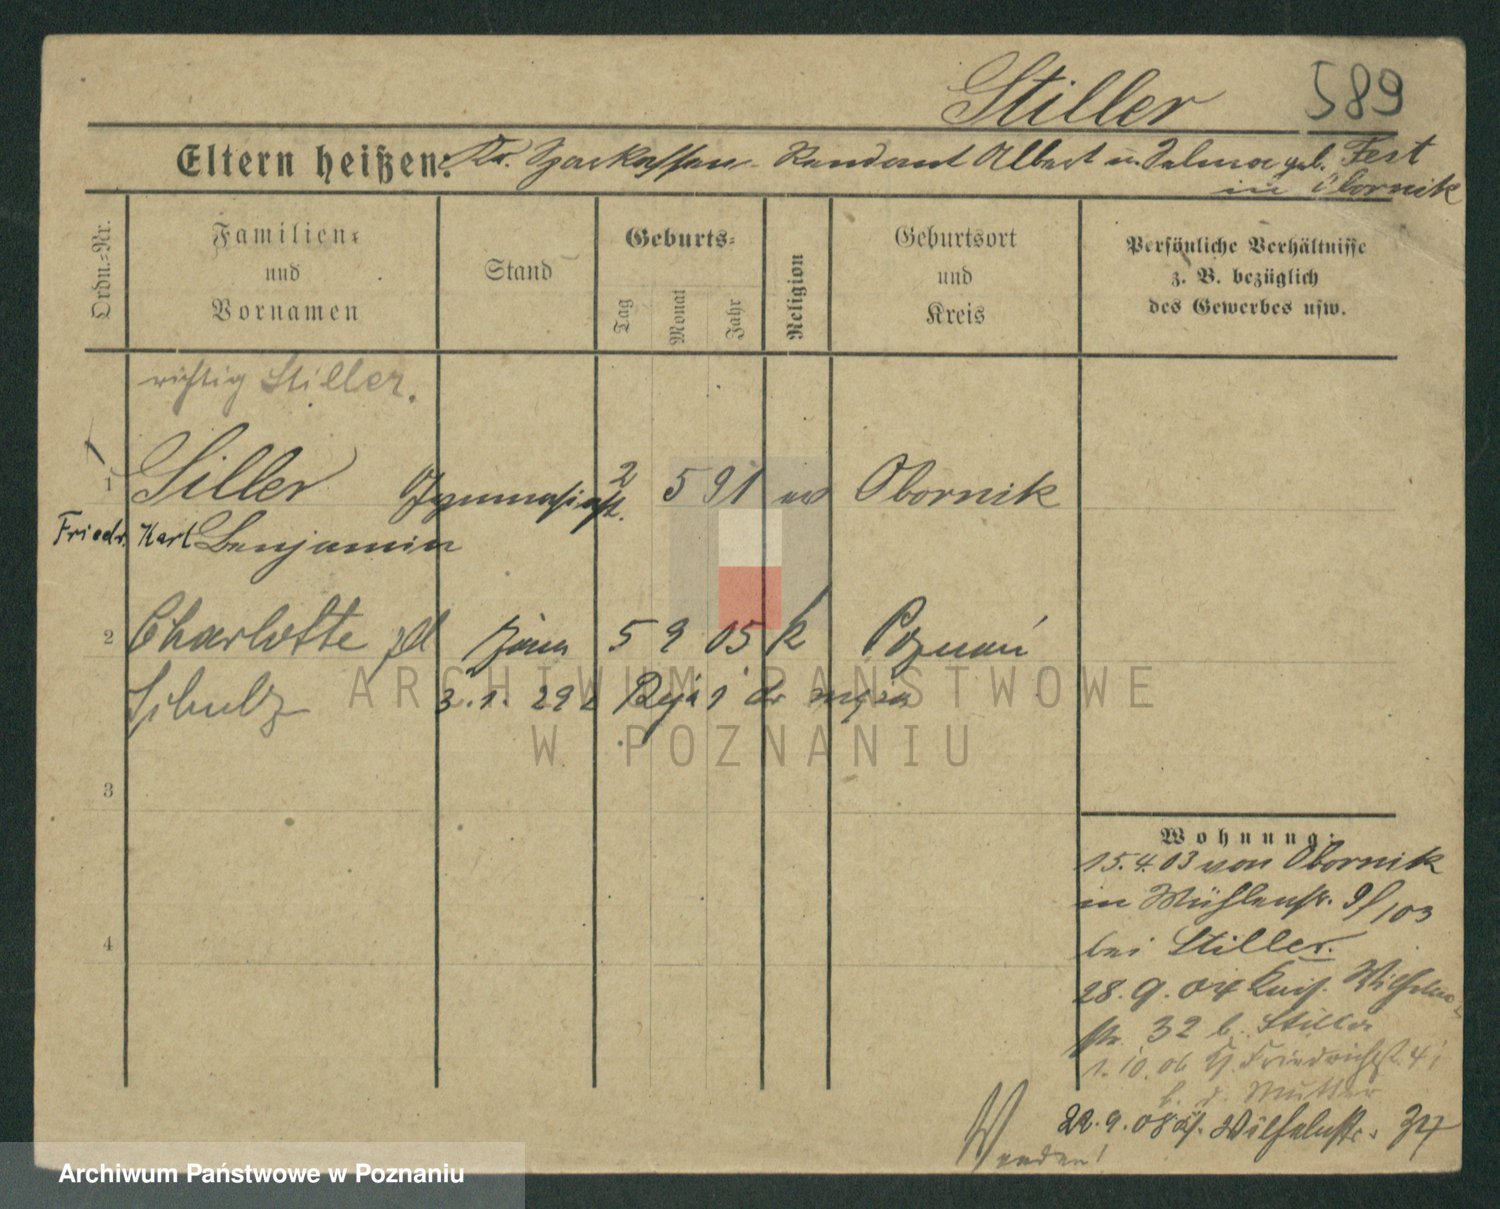 Stiller 589
Eltern heißen: Kr. Sparkassen-Rendant Albert u. Selma geb. Fest
in Obornik
Ordn.=Nr.
Familien=
und
Vornamen
Stand
Geburts=
Tag
Monat
Jahr
Religion
Geburtsort
und
Kreis
Persönliche Verhältnisse
z. B. bezüglich
des Gewerbes usw.
richtig Stiller.
1 Siller Gymnasiast. 2 5 91 Obornik
Friedr. Karl Benjamin
2 Charlotte żona 5 9 05 k Poznań
Schulz 3.1.29
3
4
Wohnung:
15.4.03 von Obornik
in Mühlenstr. 9/103
bei Stiller.
28.9.04 Wilhelm-
str. 32 b. Stiller
1.10.06 Friedrichst.
b. d. Mutter
22.9.08 Wilhelmstr. 34
Wenden!
ARCHIWUM PAŃSTWOWE
W POZNANIU
Archiwum Państwowe w Poznaniu